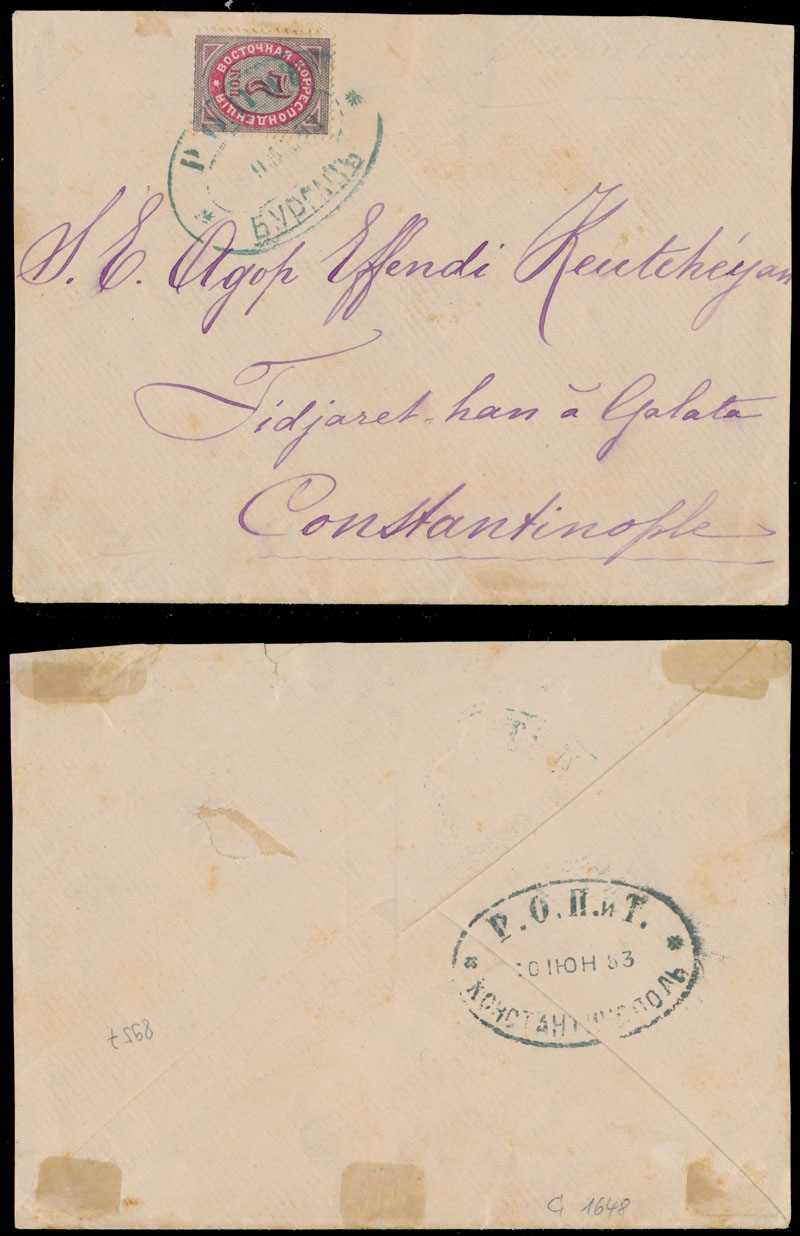 ВОСТОЧНАЯ КОРРЕСПОНДЕНЦІЯ
7
КОП
БУРГАСЪ
S. E. Agop Effendi Keutchéyan
Tidjaret-han à Galata
Constantinople
Р.О.П.иТ.
10 ІЮН 83
КОНСТАНТИНОПОЛЬ
8957
G 1648